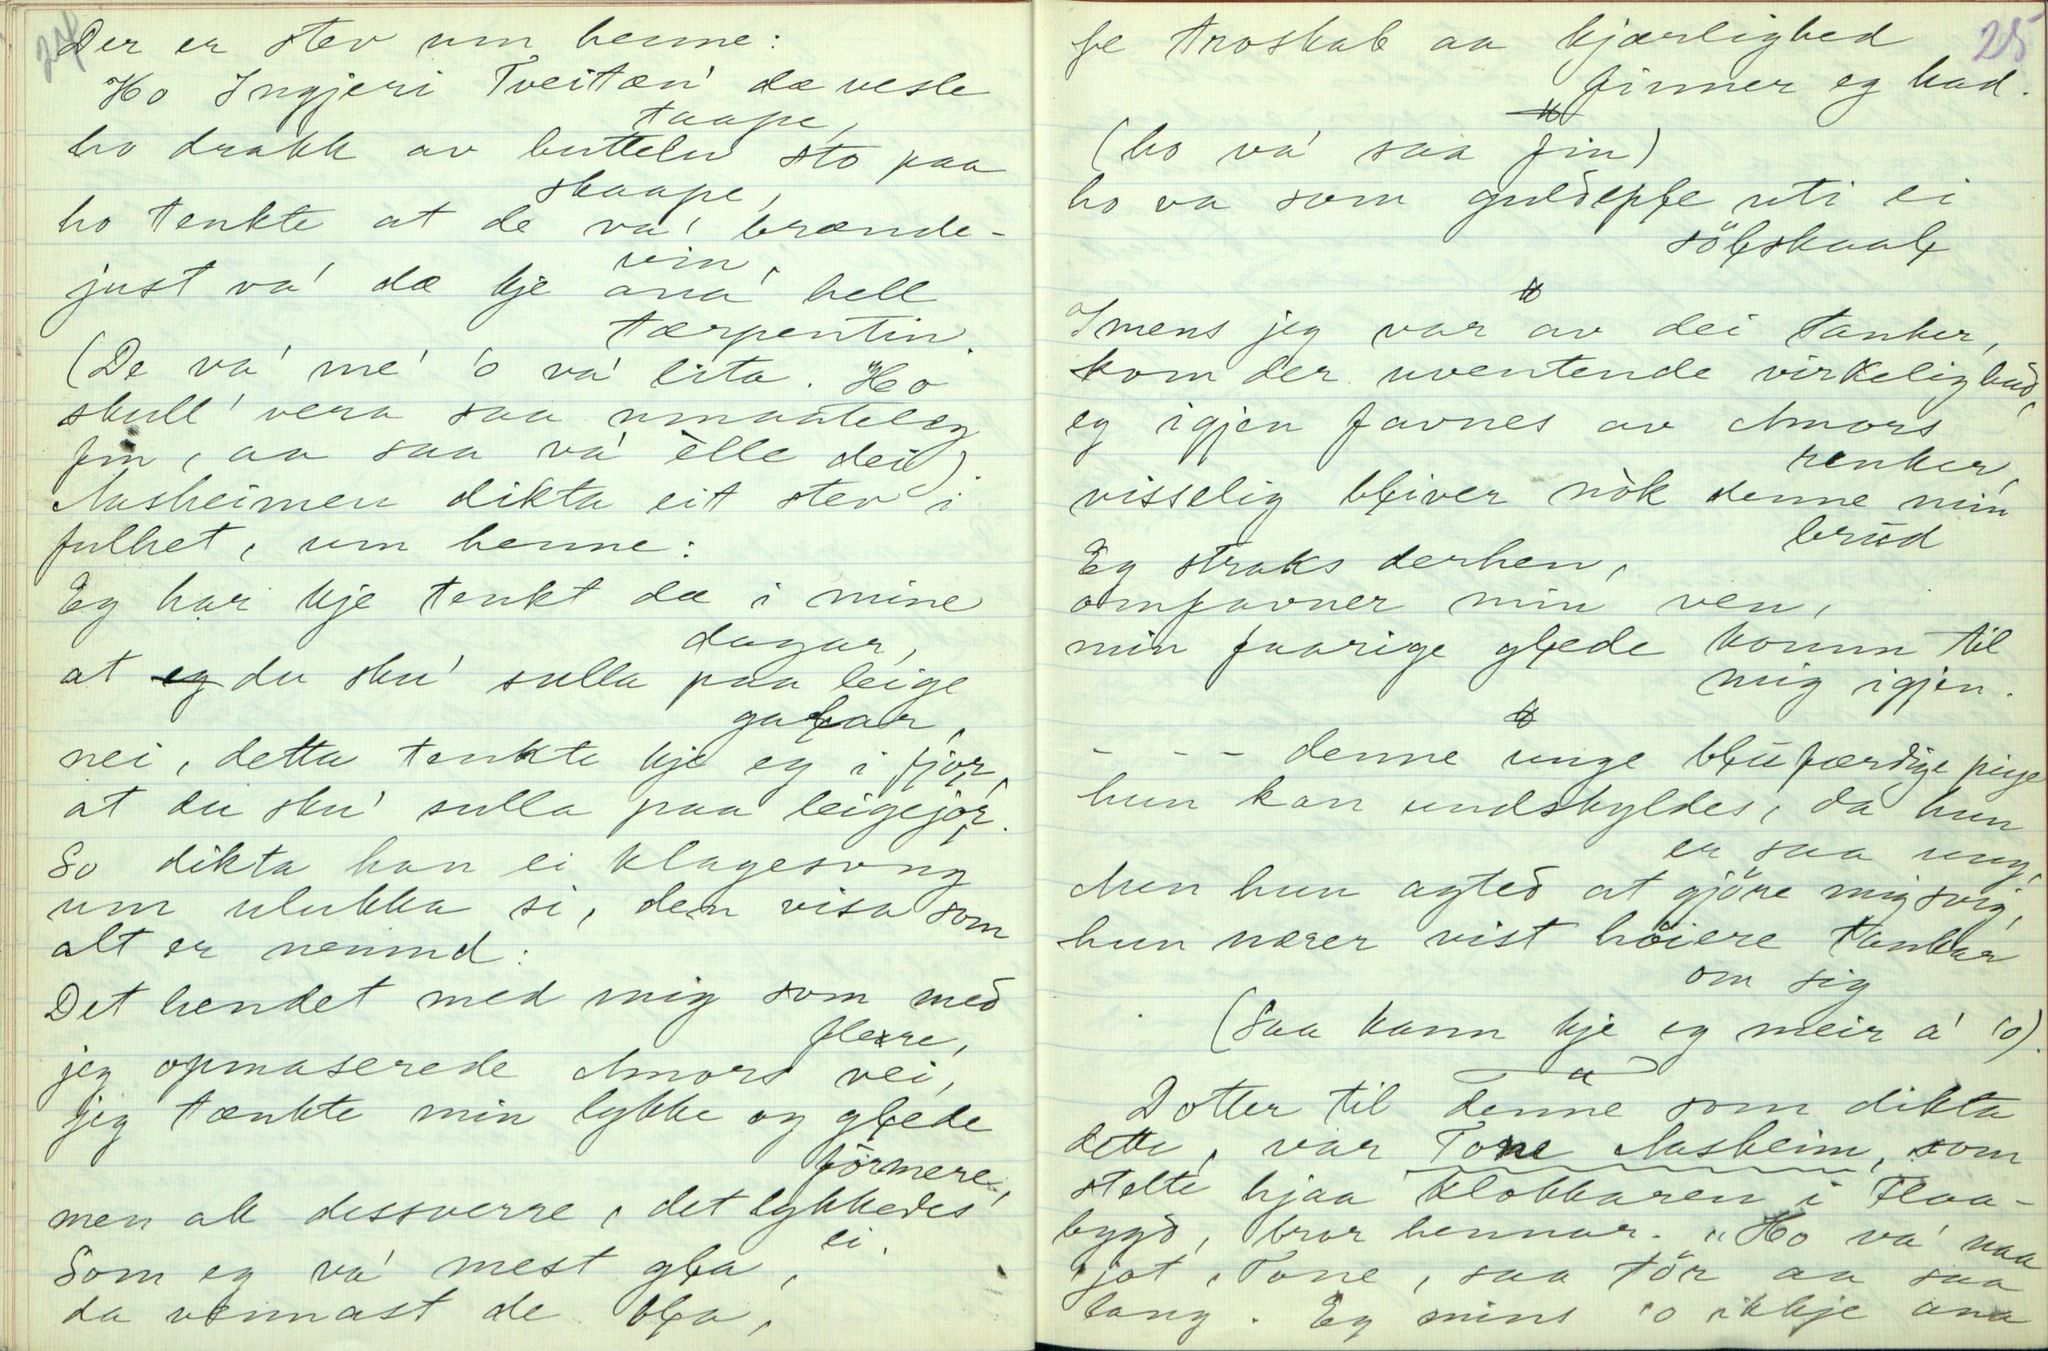 24
Der er stev um henne:
Ho Ingjeri Tveitæn' dæ vesle
taape,
ho drakk av buttelen sto paa
skaape,
ho tenkte at de va' brænde-
vin,
just va' dæ kje ana' hell
tærpentin.
(De va' me' 'o va' lita. Ho
skull' vera saa umaateleg
fin, aa saa va' èlle dei).
Aasheimen dikta eit stev i
fulhet, um henne:
Eg har kje tenkt dæ i mine
dagar,
at eg du sku' sulla paa leige
gaƚar,
nei, detta tenkte kje eg i fjor,
at du sku' sulla paa leigejor.
So dikta han ei klagesong
um ulukka si, den visa som
alt er nemnd:
Det hendet med mig som med
flere,
jeg opmaserede Amors vei,
jeg tænkte min lykke og gƚede
förmere,
men ak dessverre, det lykkedes
ei.
Som eg va' mest gƚa,
da vennast de bƚa,
25
fe troskab aa kjærlighed
finner eg had.
(ho va' saa fin)
ho va som guldepƚe uti ei
söƚskaaƚ
Imens jeg var av dei tanker,
kom der uventende virkelig bud,
eg igjen favnes av Amors
renker,
visselig bƚiver nòk denne min
brud
Eg straks derhen,
omfavner min ven,
min faarige gƚede komm til
mig igjen.
- - - denne unge bƚufærdige pige
hun kan undskyldes, da hun
er saa ung,
Men hun agted at gjöre mig svig,
hun nærer vist höiere tankar
om sig
(Saa kann kje eg meir a' 'o).
Dotter til denne som dikta
dette, var Tone Aasheim, som
stelte hjaa klokkaren i Flaa-
bygd, bror hennar. "Ho va' naa
jot, Tone, saa tör aa saa
lang. Eg mins 'o ikkje ana